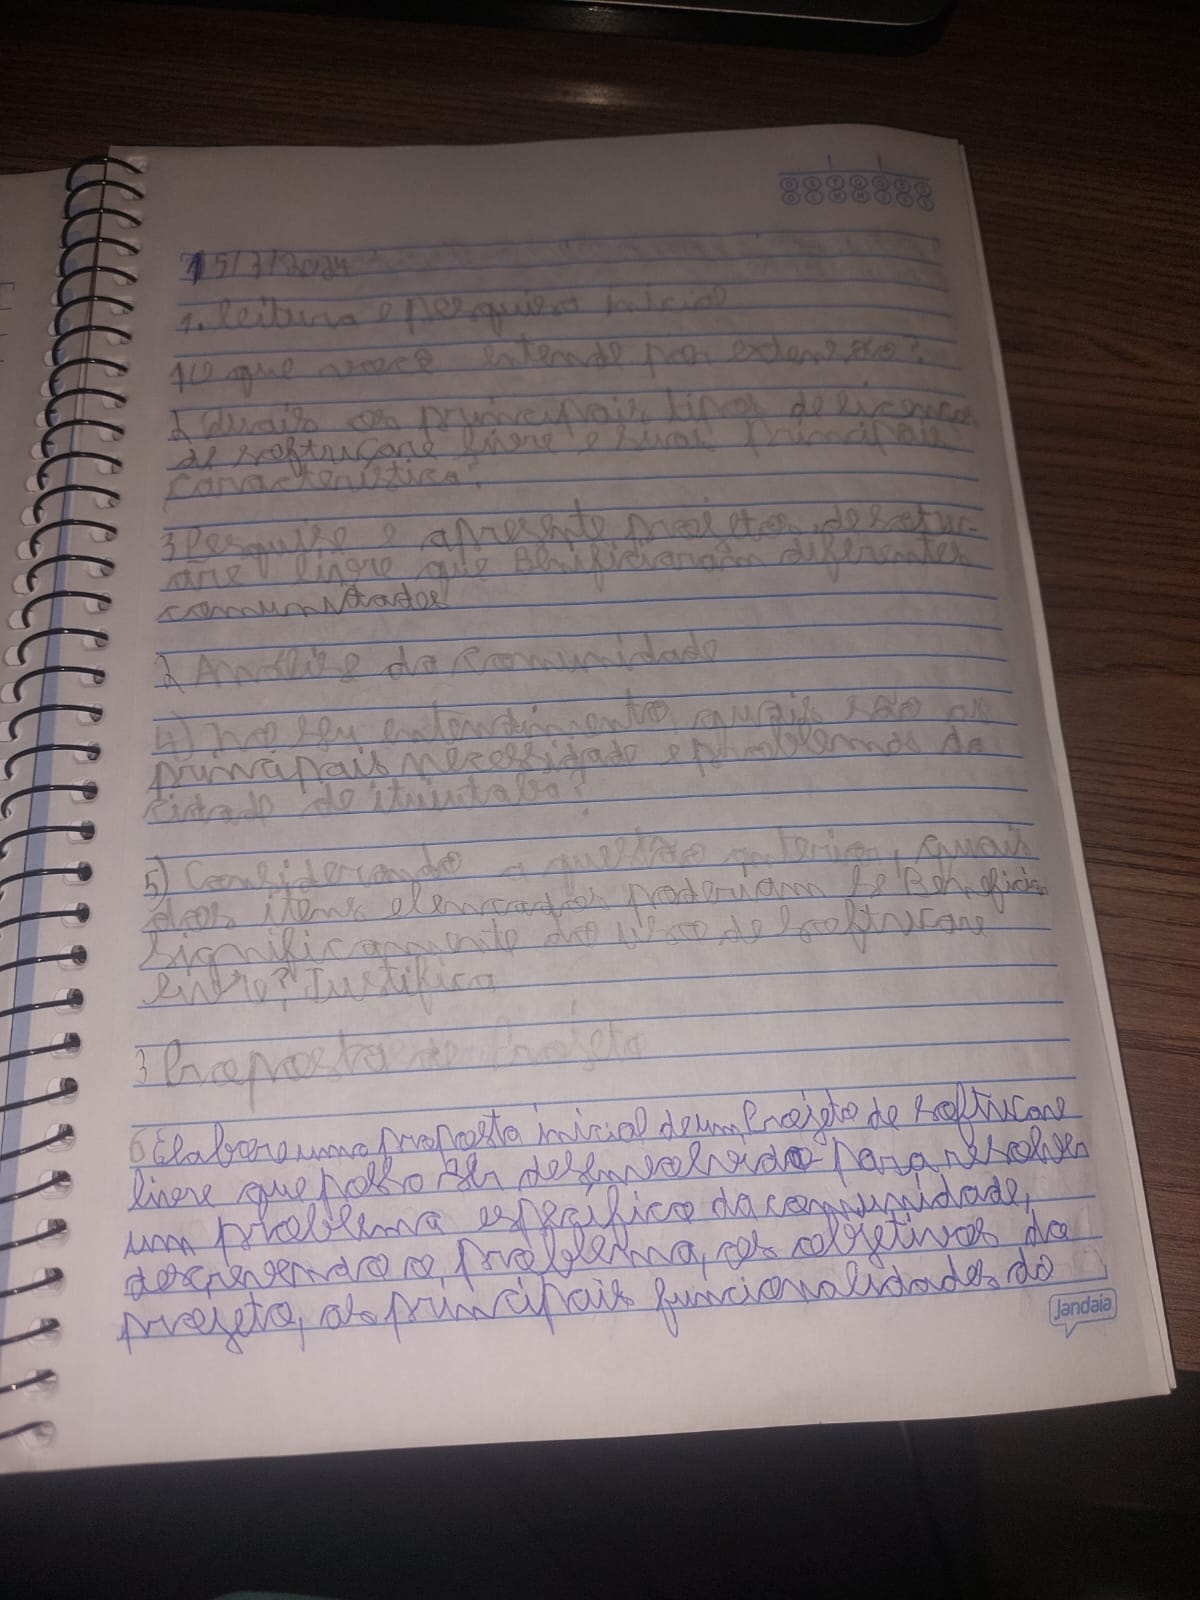 15/7/2024
1. leitura e pesquisa inicial
1) O que você entende por extensão?
2) Quais os principais tipos de licenças
de software livre e suas principais
característica?
3 Pesquise e apresente projetos de softw-
are livre que Beneficiaram diferentes
comunidades
2 Análise da comunidade
4) No seu entendimento, quais são as
principais necessidade e problemas da
cidade de ituiutaba?
5) Considerando a questão anterior, quais
dos itens elencados poderiam se Beneficiar
significamente do uso de software
livre? Justifica
3 Proposta de Projeto
6 Elabore uma proposta inicial de um Projeto de software
livre que possa ser desenvolvido para resolver
um problema específico da comunidade,
descrevendo o problema, os objetivos do
projeto, as principais funcionalidades do
Jandaia